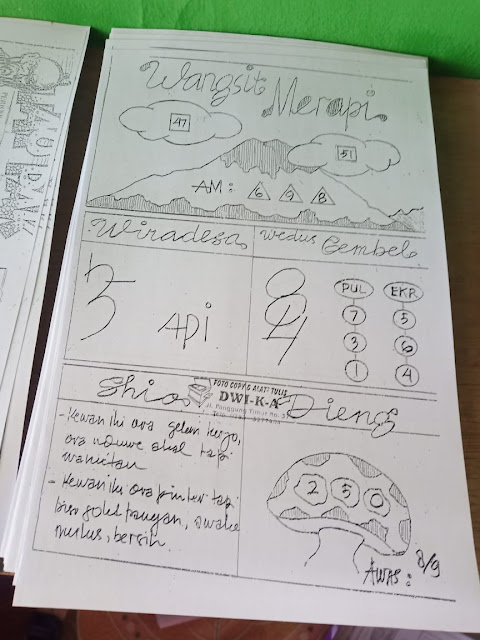 Wangsit Merapi
47
51
AM: 6 9 8
Wiradesa
Wedus Gembel
PUL EKR
7 5
3 6
1 4
API
8
Shio
Dieng
FOTO COPY & ALAT TULIS
DWI-K-A
Jl. Panggung Timur No.
- Kewan iki ora gelem kerjo,
ora nduwe akal tapi
wanitan
- Kewan iki ora pinter tapi
biso golek pangan, awake
mulus, bersih.
2 5 0
AWAS: 8/9